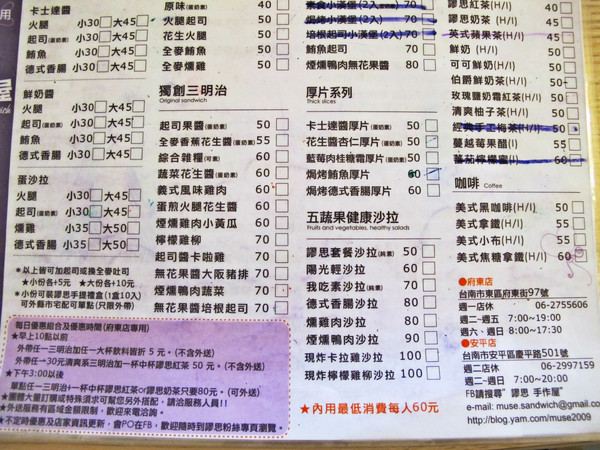 用
屋
卡士達醬
火腿 小30 大45
起司(蛋奶素) 小30 大45
鮪魚 小30 大45
德式香腸 小30 大45
鮮奶醬
火腿 小30 大45
起司(蛋奶素) 小30 大45
鮪魚 小30 大45
德式香腸 小30 大45
蛋沙拉
火腿 小30 大45
起司(蛋奶素) 小30 大45
燻雞 小35 大50
德式香腸 小35 大50
*以上皆可加起司或換全麥吐司
★小份各+5元 ★大份各+10元
*小份可裝謬思手提禮盒(1盒10入)
可外縣市宅配可單點(只限外帶)
原味(蛋奶素) 40
火腿起司 50
花生火腿 50
全麥鮪魚 50
全麥燻雞 50
獨創三明治
Original sandwich
起司果醬(蛋奶素) 50
全麥香蕉花生醬(蛋奶素) 55
綜合雜糧(可素) 60
蔬菜花生醬(蛋奶素) 60
義式風味雞肉 60
蛋煎火腿花生醬 60
煙燻雞肉小黃瓜 60
檸檬雞柳 70
起司醬卡啦雞 70
無花果醬大阪豬排 70
煙燻鴨肉蔬菜 70
無花果醬培根起司 70
素食小漢堡(2入) 70
焗烤小漢堡(2入) 70
培根起司小漢堡(2入) 70
鮪魚起司 70
煙燻鴨肉無花果醬 80
厚片系列
Thick slices
卡士達醬厚片(蛋奶素) 50
花生醬杏仁厚片(蛋奶素) 50
藍莓肉桂糖霜厚片(蛋奶素) 50
焗烤鮪魚厚片 60
焗烤德式香腸厚片 60
五蔬果健康沙拉
Fruits and vegetables, healthy salads
謬思套餐沙拉(純素) 50
陽光輕沙拉 60
我吃素沙拉(純素) 70
德式香腸沙拉 80
燻雞肉沙拉 80
煙燻鴨肉沙拉 90
現炸卡拉雞沙拉 100
現炸檸檬雞柳沙拉 100
★內用最低消費每人60元
謬思紅茶(H/I) 40
謬思奶茶 (H/I) 45
英式蘋果茶(H/I) 45
鮮奶 (H/I) 50
可可鮮奶(H/I) 50
伯爵鮮奶茶(H/I) 50
玫瑰鹽奶霜紅茶(H/I) 50
清爽柚子茶(H/I) 50
經典手工梅茶(H/I) 50
蔓越莓果醋(I) 50
蕃茄檸檬蜜(I) 60
咖啡 Coffee
美式黑咖啡(H/I) 50
美式拿鐵(H/I) 55
美式小布(H/I) 55
美式焦糖拿鐵(H/I) 60
●府東店
台南市東區府東街97號
週一店休 06-2755606
週二~週五 7:00~19:00
週六、週日 8:00~17:30
●安平店
台南市安平區慶平路501號
週二店休 06-2997159
週一~週日 7:00~20:00
FB請搜尋"謬思 手作屋"
e-mail: muse.sandwich@gmail.co
http://blog.yam.com/muse2009
每日優惠組合及優惠時間(府東店專用)
★早上10點以前
外帶任一三明治加任一大杯飲料皆折 5 元。(不含外送)
外帶任一+30元清爽系三明治加一中杯謬思紅茶 50 元。(不含外送)
★下午3:00以後
單點任一三明治+一杯中杯謬思紅茶or謬思奶茶只要80元。(可外送)
★團體大量訂購或特殊須求可幫您另外搭配,請洽服務人員!!
★外送服務有區域金額限制,歡迎來電洽詢。
*不定時優惠及店家資訊更新,會PO在FB,歡迎隨時到謬思粉絲專頁瀏覽。